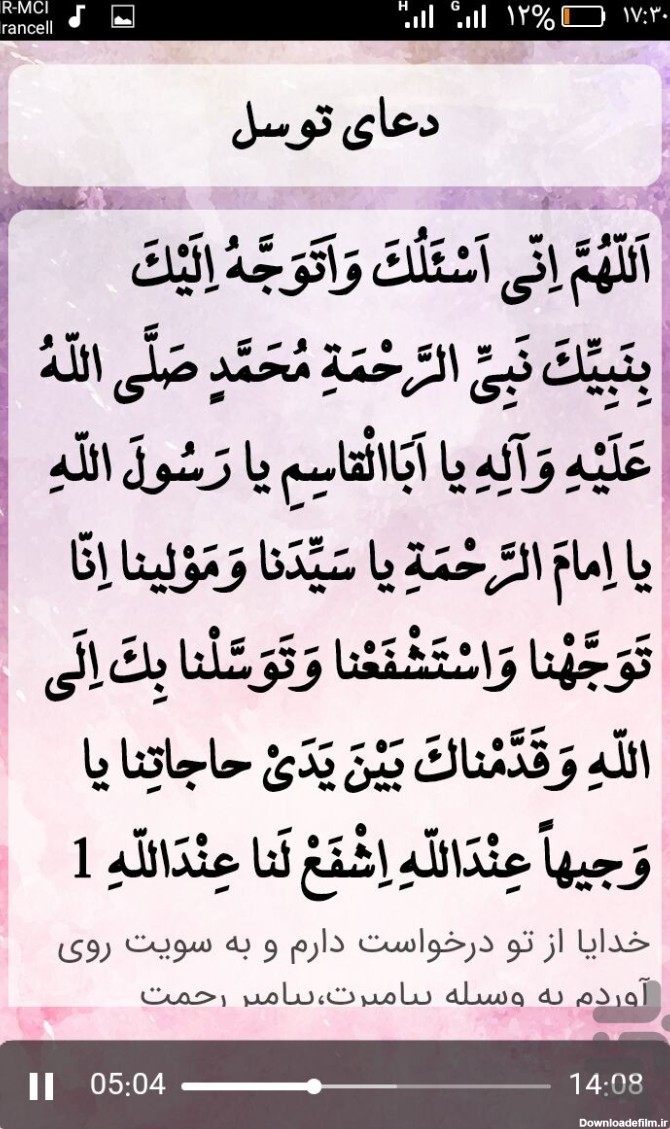 IR-MCI
Irancell
H
G
۱۲%
۱۷:۳۰
دعای توسل
اَللّهُمَّ اِنّی اَسْئَلُكَ وَاَتَوَجَّهُ اِلَیْكَ
بِنَبِیِّكَ نَبِیِّ الرَّحْمَةِ مُحَمَّدٍ صَلَّی اللّهُ
عَلَیْهِ وَآلِهِ یا اَبَاالْقاسِمِ یا رَسُولَ اللّهِ
یا اِمامَ الرَّحْمَةِ یا سَیِّدَنا وَمَوْلینا اِنّا
تَوَجَّهْنا وَاسْتَشْفَعْنا وَتَوَسَّلْنا بِكَ اِلَی
اللّهِ وَقَدَّمْناكَ بَیْنَ یَدَیْ حاجاتِنا یا
وَجیهاً عِنْدَاللّهِ اِشْفَعْ لَنا عِنْدَاللّهِ 1
خدایا از تو درخواست دارم و به سویت روی
آوردم به وسیله پیامبرت،پیامبر رحمت
05:04
14:08
Downloadefilm.ir